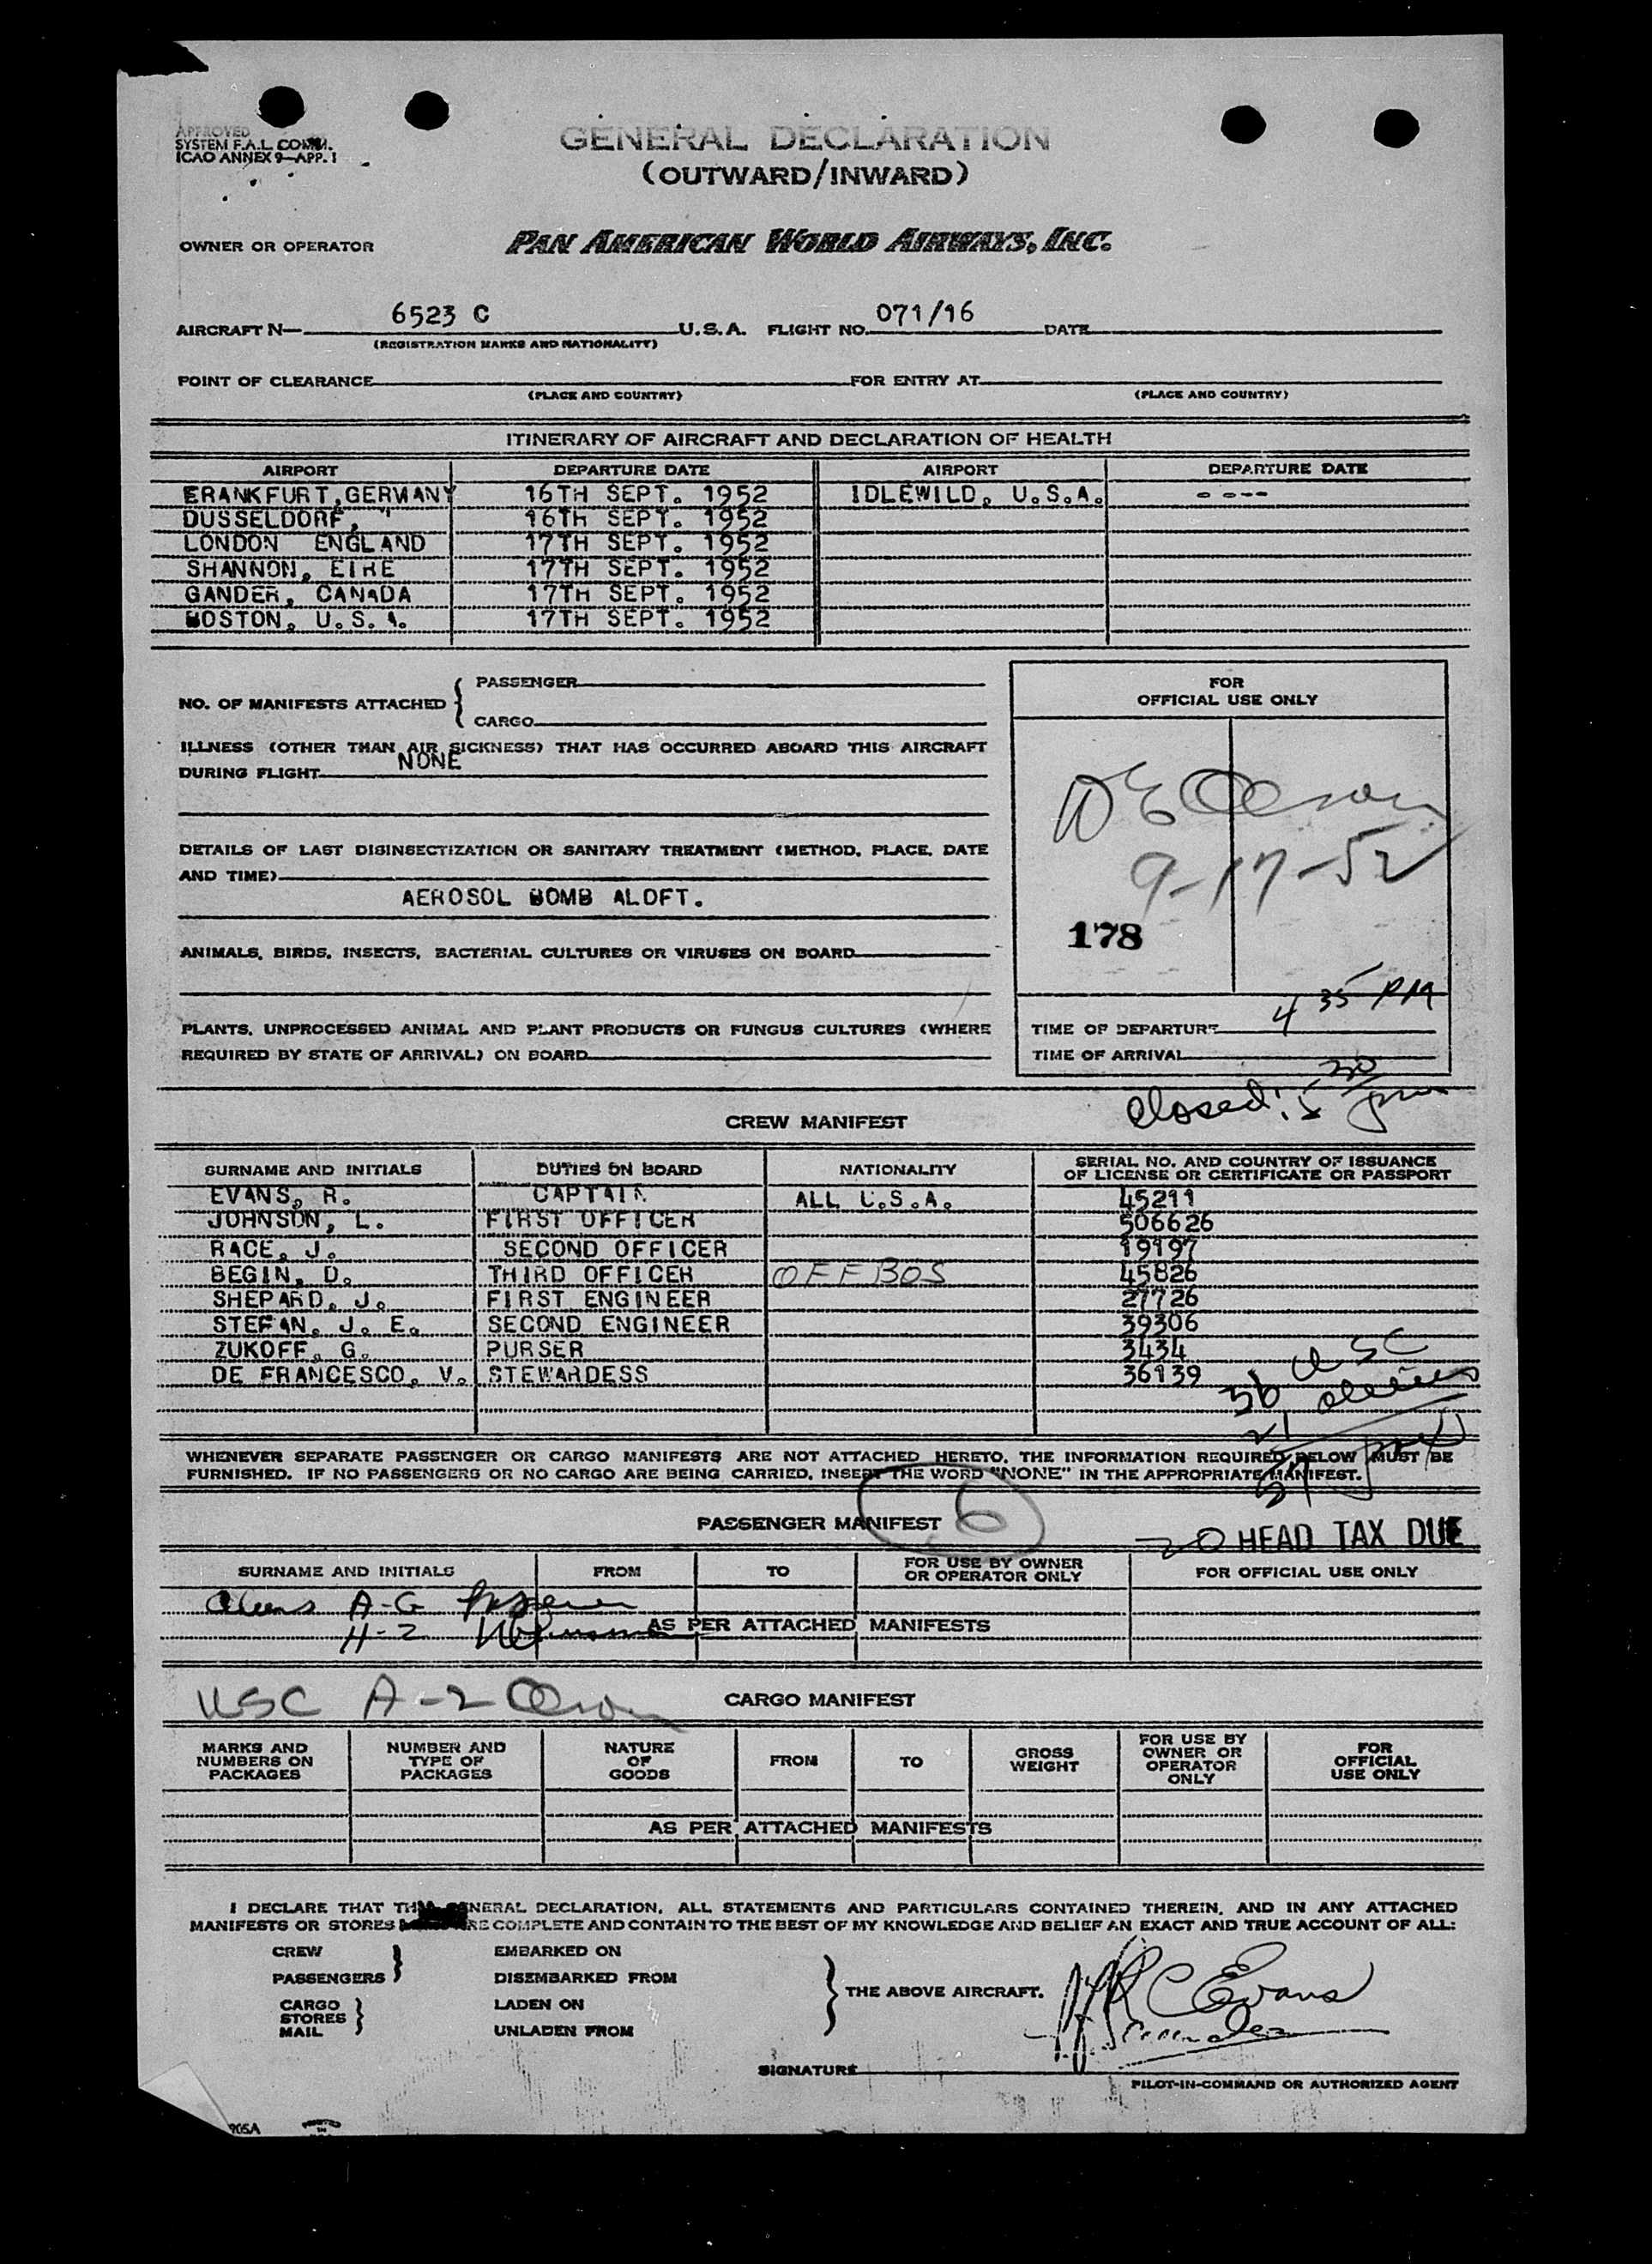 APPROVED
SYSTEM F.A.L. COMM.
ICAO ANNEX 9—APP. 1
GENERAL DECLARATION
(OUTWARD/INWARD)
OWNER OR OPERATOR PAN AMERICAN WORLD AIRWAYS, INC.
AIRCRAFT N— 6523 C U.S.A. FLIGHT NO. 071/16 DATE
(REGISTRATION MARKS AND NATIONALITY)
POINT OF CLEARANCE FOR ENTRY AT
(PLACE AND COUNTRY) (PLACE AND COUNTRY)
ITINERARY OF AIRCRAFT AND DECLARATION OF HEALTH
AIRPORT DEPARTURE DATE AIRPORT DEPARTURE DATE
FRANKFURT, GERMANY 16TH SEPT. 1952 IDLEWILD, U.S.A. ----
DUSSELDORF, " 16TH SEPT. 1952
LONDON ENGLAND 17TH SEPT. 1952
SHANNON, EIRE 17TH SEPT. 1952
GANDER, CANADA 17TH SEPT. 1952
BOSTON, U.S.A. 17TH SEPT. 1952
NO. OF MANIFESTS ATTACHED { PASSENGER
CARGO
ILLNESS (OTHER THAN AIR SICKNESS) THAT HAS OCCURRED ABOARD THIS AIRCRAFT
DURING FLIGHT NONE
DETAILS OF LAST DISINSECTIZATION OR SANITARY TREATMENT (METHOD, PLACE, DATE
AND TIME)
AEROSOL BOMB ALOFT.
ANIMALS, BIRDS, INSECTS, BACTERIAL CULTURES OR VIRUSES ON BOARD
PLANTS, UNPROCESSED ANIMAL AND PLANT PRODUCTS OR FUNGUS CULTURES (WHERE
REQUIRED BY STATE OF ARRIVAL) ON BOARD
FOR
OFFICIAL USE ONLY
9-17-52
178
TIME OF DEPARTURE 4 35 PM
TIME OF ARRIVAL
closed: 5 30 pm
CREW MANIFEST
SURNAME AND INITIALS DUTIES ON BOARD NATIONALITY SERIAL NO. AND COUNTRY OF ISSUANCE
OF LICENSE OR CERTIFICATE OR PASSPORT
EVANS, R. CAPTAIN ALL U.S.A. 45211
JOHNSON, L. FIRST OFFICER 506626
RACE, J. SECOND OFFICER 19197
BEGIN, D. THIRD OFFICER OFF BOS 45826
SHEPARD, J. FIRST ENGINEER 27726
STEFAN, J. E. SECOND ENGINEER 39306
ZUKOFF, G. PURSER 3434
DE FRANCESCO, V. STEWARDESS 36139
36 USC
21 aliens
57
WHENEVER SEPARATE PASSENGER OR CARGO MANIFESTS ARE NOT ATTACHED HERETO, THE INFORMATION REQUIRED BELOW MUST BE
FURNISHED. IF NO PASSENGERS OR NO CARGO ARE BEING CARRIED, INSERT THE WORD "NONE" IN THE APPROPRIATE MANIFEST.
PASSENGER MANIFEST 6
20 HEAD TAX DUE
SURNAME AND INITIALS FROM TO FOR USE BY OWNER
OR OPERATOR ONLY FOR OFFICIAL USE ONLY
Aliens A-G
H-Z AS PER ATTACHED MANIFESTS
USC A-Z Olson
CARGO MANIFEST
MARKS AND
NUMBERS ON
PACKAGES NUMBER AND
TYPE OF
PACKAGES NATURE
OF
GOODS FROM TO GROSS
WEIGHT FOR USE BY
OWNER OR
OPERATOR
ONLY FOR
OFFICIAL
USE ONLY
AS PER ATTACHED MANIFESTS
I DECLARE THAT GENERAL DECLARATION, ALL STATEMENTS AND PARTICULARS CONTAINED THEREIN, AND IN ANY ATTACHED
MANIFESTS OR STORES ARE COMPLETE AND CONTAIN TO THE BEST OF MY KNOWLEDGE AND BELIEF AN EXACT AND TRUE ACCOUNT OF ALL:
CREW
PASSENGERS } EMBARKED ON
DISEMBARKED FROM
CARGO
STORES
MAIL } LADEN ON
UNLADEN FROM
} THE ABOVE AIRCRAFT.
R C Evans
SIGNATURE
PILOT-IN-COMMAND OR AUTHORIZED AGENT